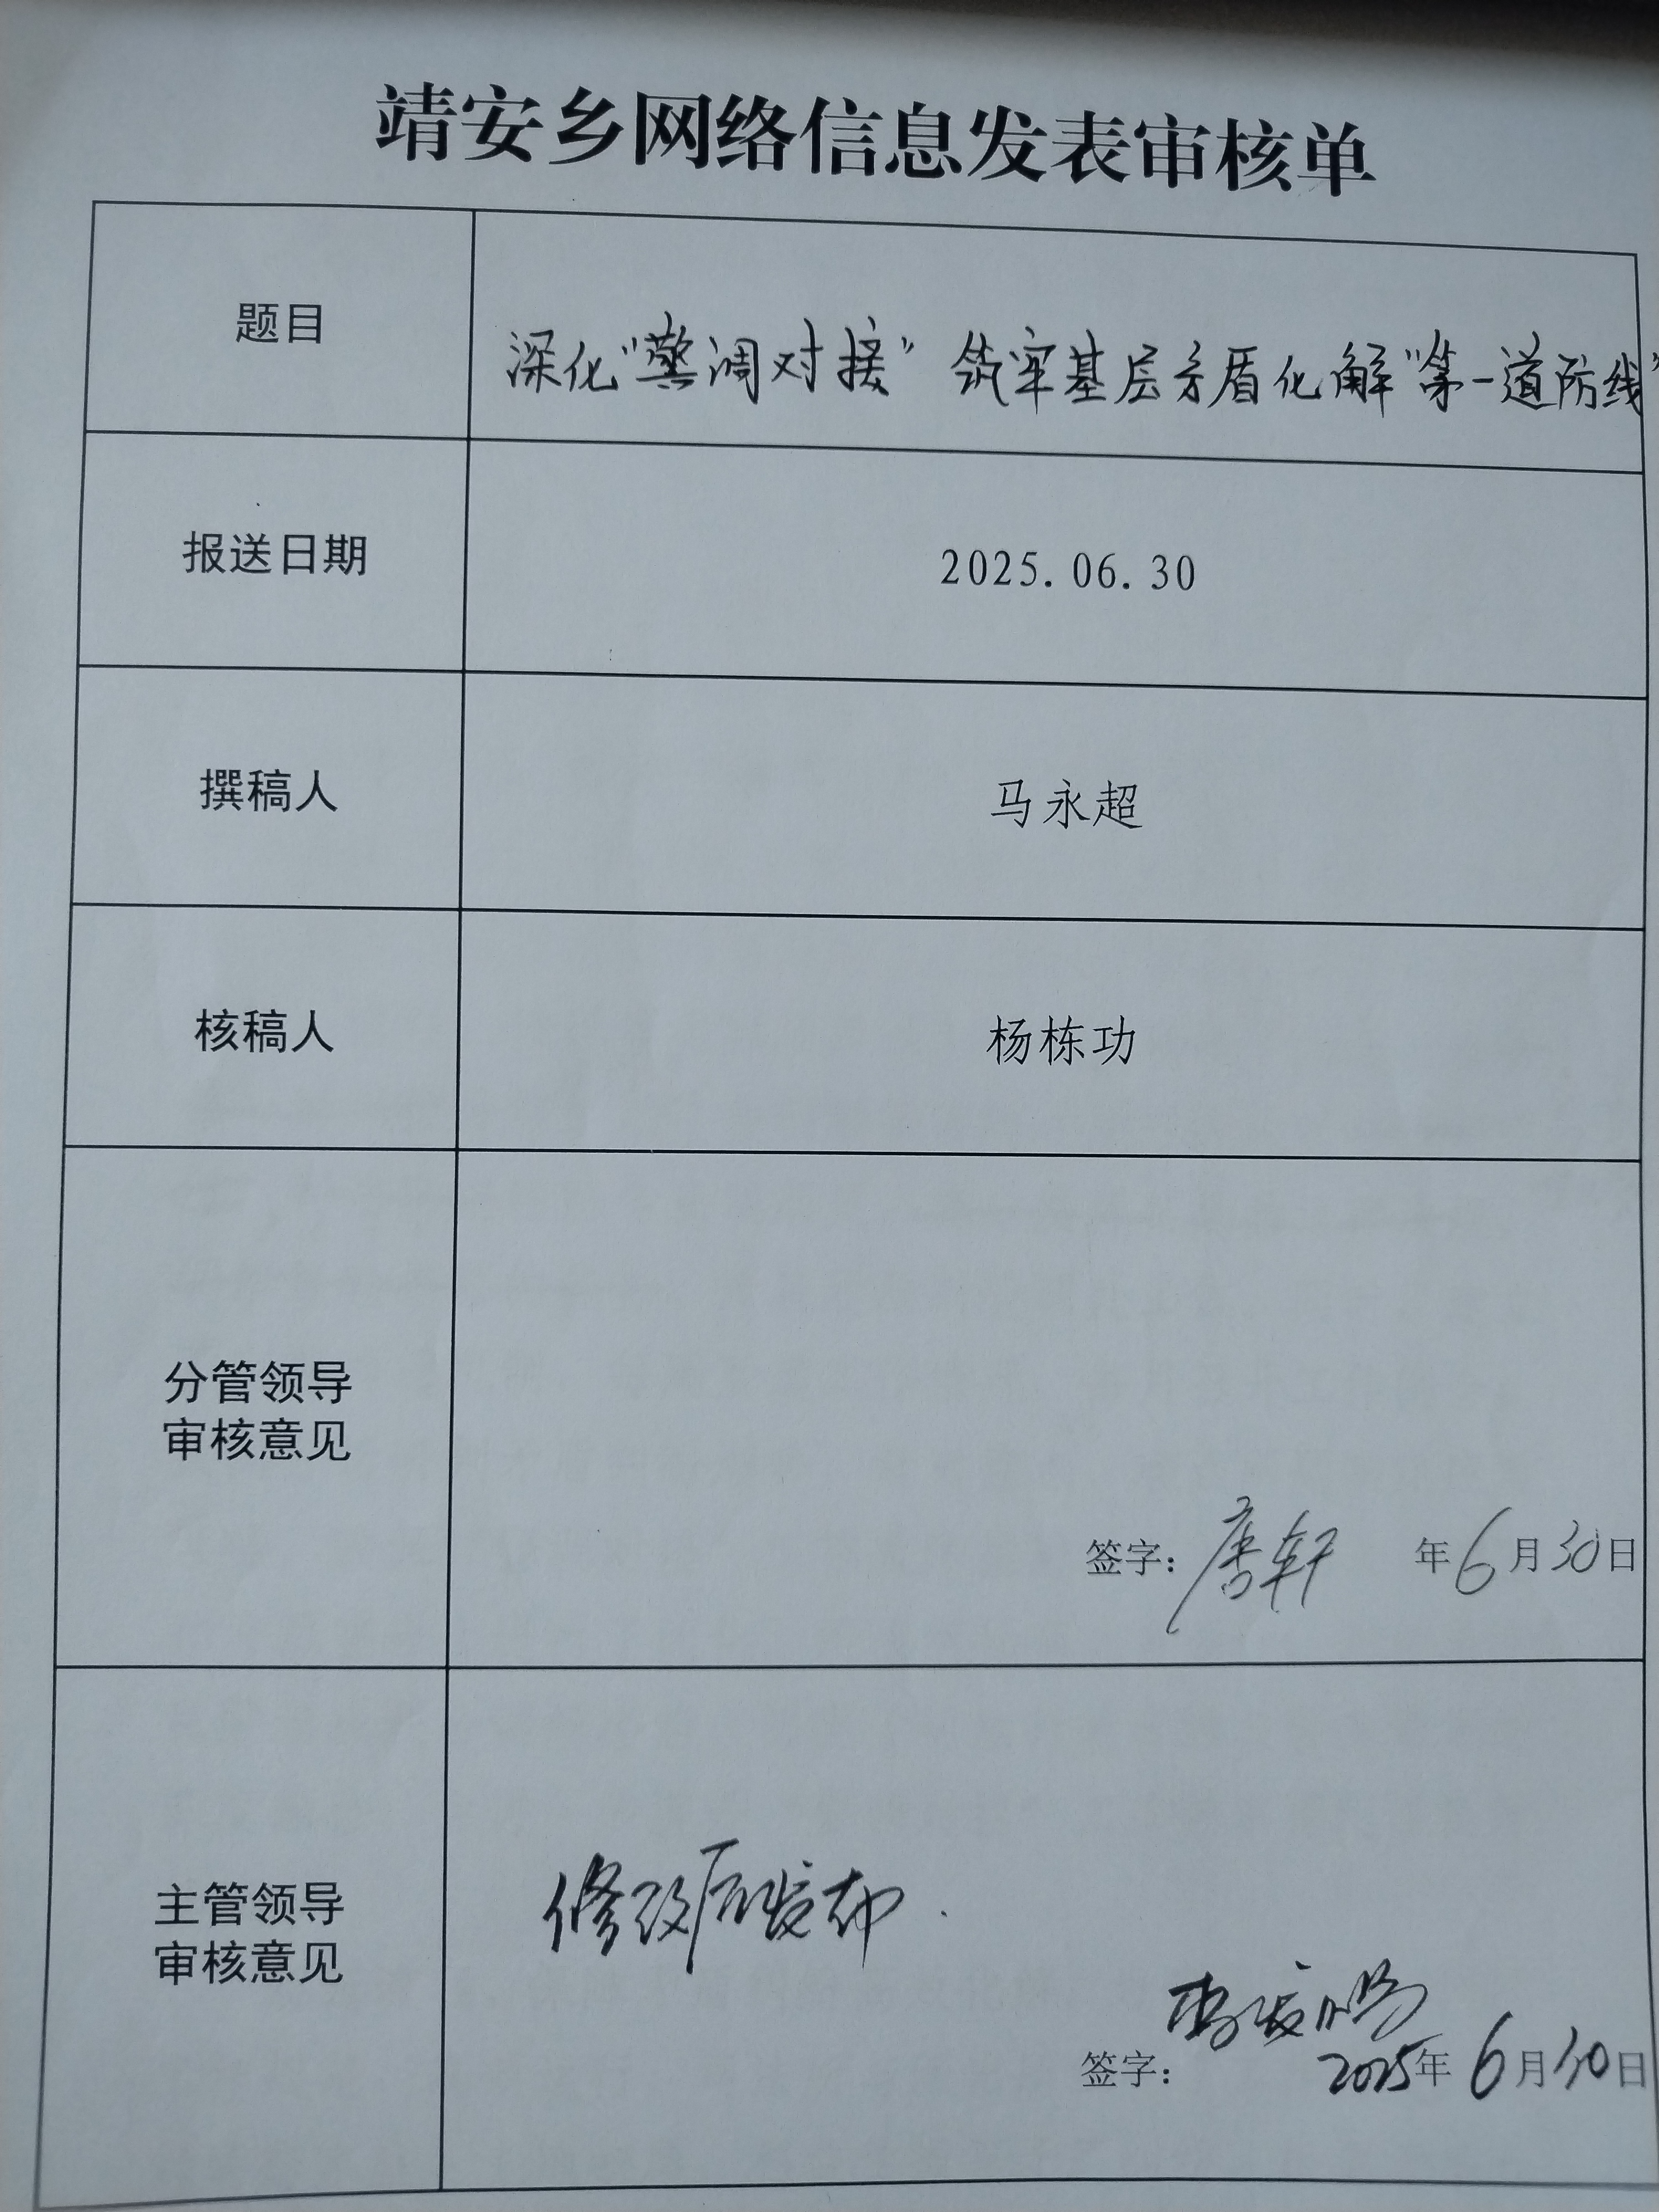 靖安乡网络信息发表审核单
题目
深化“警调对接” 筑牢基层矛盾化解“第一道防线”
报送日期
2025.06.30
撰稿人
马永超
核稿人
杨栋功
分管领导
审核意见
签字：唐轩 年6月30日
主管领导
审核意见
修改后发布.
签字： 2025年6月30日